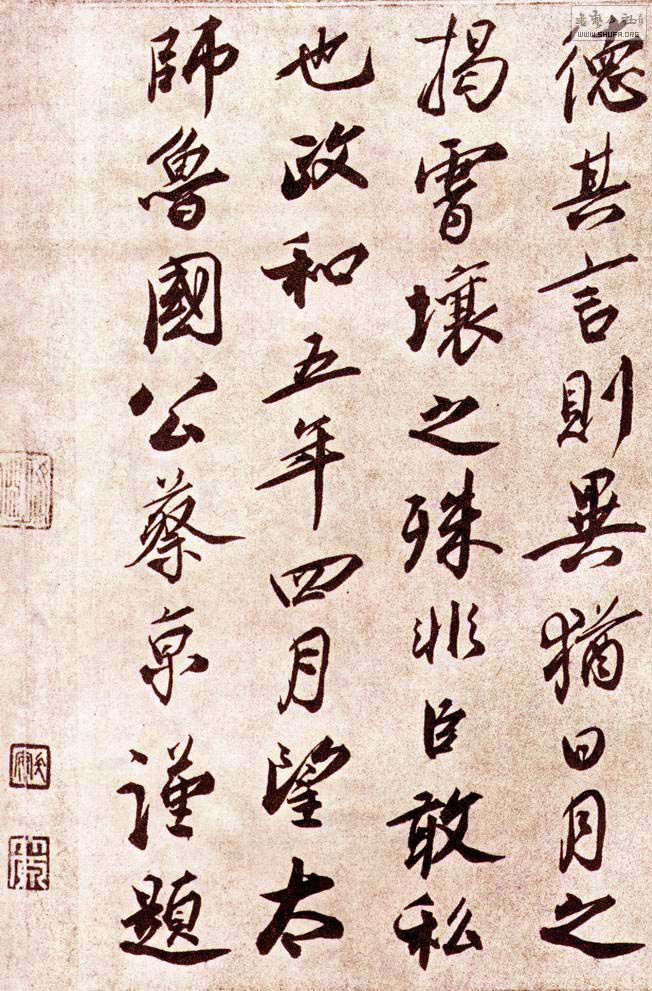 德其言則異猶日月之
揭霄壤之殊非臣敢私
也政和五年四月望太
師魯國公蔡京謹題
WWW.SHUFA.ORG